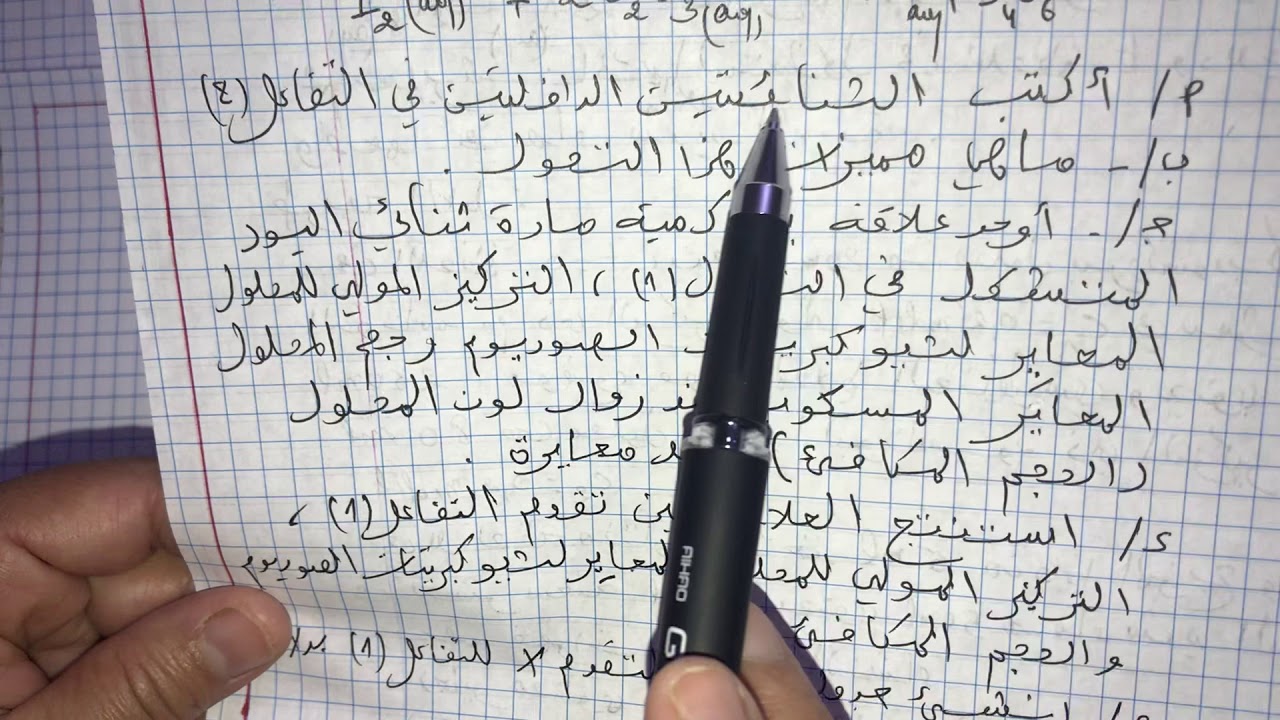 I2(aq) + 2 2 3(aq) aq 4 6
م/ أكتب الثنائيتين الداخليتين في التفاعل (2)
ب/- ماهي مميزات هذا التحول .
ج/- أوجد علاقة كمية مادة ثنائي اليود
المتشكل في (1) ، التركيز المولي للمحلول
المعاير لثيو الصوديوم وحجم المحلول
المعاير زوال لون المحلول
(الحجم المكافئ) معايرة .
د/ استنتج تقدم التفاعل (1) ،
التركيز المولي المعاير لثيو كبريتات الصوديوم
والحجم المكافئ
X للتفاعل (1) بدلا
AIHAO
G